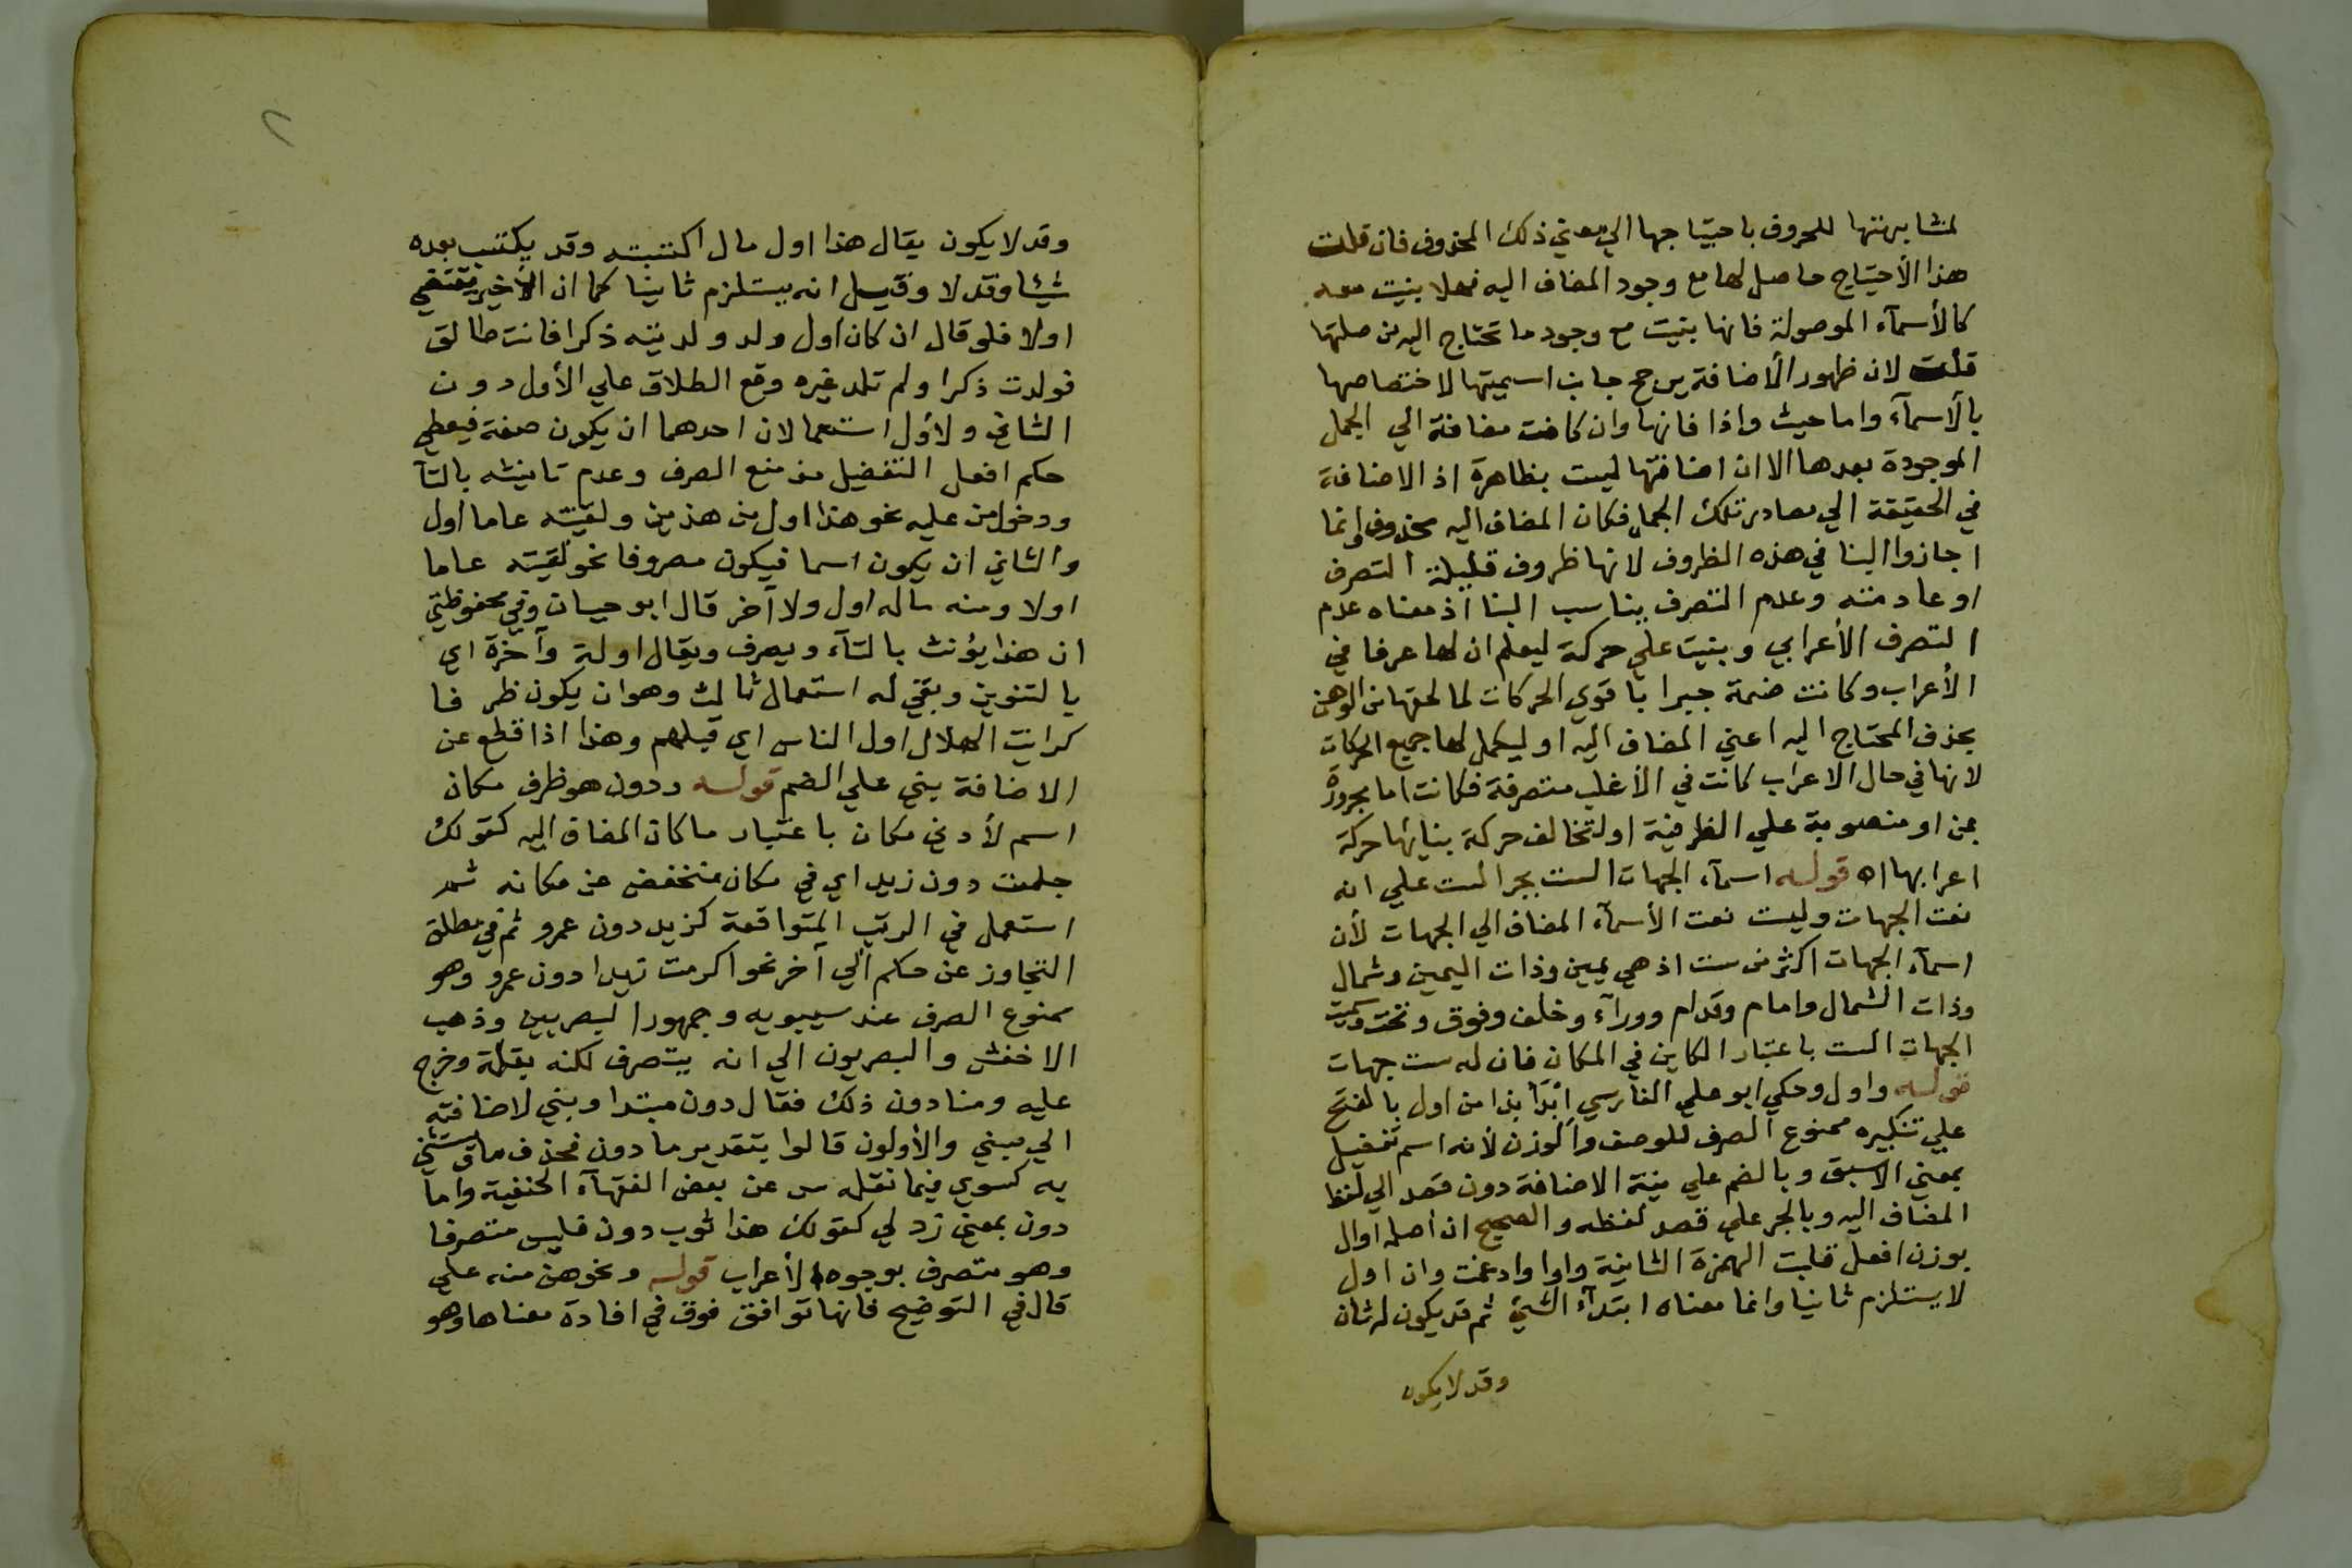 لمشابهتها للحروف باحتياجها الي معني ذلك المحذوف فان قلت
هذا الأحتياج حاصل لها مع وجود المضاف اليه فهلا بنيت معه
كالأسمآء الموصولة فانها بنيت مع وجود ما تحتاج اليه من صلتها
قلت لان ظهور الأضافة يرجح جانب اسميتها لاختصاصها
بالأسمآء واما حيث واذا فانها وان كانت مضافة الي الجمل
الموجودة بعدها الا ان اضافتها ليست بظاهرة اذ الاضافة
في الحقيقة الي مصادر تلك الجمل فكان المضاف اليه محذوف وانما
اجازوا البنا في هذه الظروف لانها ظروف قليلة التصرف
او عادمته وعدم التصرف يناسب البنا اذ معناه عدم
التصرف الأعرابي وبنيت علي حركة ليعلم ان لها عرفا في
الأعراب وكانت ضمة جبرا باقوي الحركات لما لحقها من الوهن
بحذف المحتاج اليه اعني المضاف اليه او ليكمل لها جميع الحركات
لانها في حال الاعراب كانت في الأغلب متصرفة فكانت اما مجرورة
بمن او منصوبة علي الظرفية او لتخالف حركة بنايها حركة
اعرابها اه قوله اسمآء الجهات الست بجر الست علي انه
نعت الجهات وليست نعت الأسمآء المضاف الي الجهات لأن
اسمآء الجهات اكثر من ست اذ هي يمين وذات اليمين وشمال
وذات الشمال وامام وقدام وورآء وخلف وفوق وتحت وسميت
الجهات الست باعتبار الكاين في المكان فان له ست جهات
قوله واول وحكي ابو علي الفارسي ابدأ بذا من اول بالفتح
علي تنكيره ممنوع الصرف للوصف والوزن لأنه اسم تفضيل
بمعني الاسبق وبالضم علي نية الاضافة دون قصد الي لفظ
المضاف اليه وبالجر علي قصد لفظه والصحيح ان اصله اوال
بوزن افعل قلبت الهمزة الثانية واوا وادغمت وان اول
لا يستلزم ثانيا وانما معناه ابتدآء الشيئ ثم قد يكون له ثان
وقد لا يكون
٢
وقد لا يكون يقال هذا اول مال اكتسبته وقد يكتسب بعده
شيئا وقد لا وقيل انه يستلزم ثانيا كما ان الأخير يقتضي
اولا فلو قال ان كان اول ولد ولدتيه ذكرا فانت طالق
فولدت ذكرا ولم تلد غيره وقع الطلاق علي الأول دون
الثاني ولأول استعمالان احدهما ان يكون صفة فيعطي
حكم افعل التفضيل من منع الصرف وعدم تانيثه بالتآ
ودخول من عليه نحو هذا اول من هذين ولقيته عاما اول
والثاني ان يكون اسما فيكون مصروفا نحو لقيته عاما
اولا ومنه ماله اول ولا آخر قال ابو حيان وفي محفوظتي
ان هذا يؤنث بالتآء ويصرف ويقال اولة وآخرة اي
بالتنوين وبقي له استعمال ثالث وهو ان يكون ظرفا
كرايت الهلال اول الناس اي قبلهم وهذا اذا قطع عن
الاضافة يبني علي الضم قوله ودون هو ظرف مكان
اسم لأدني مكان باعتبار مكان المضاف اليه كقولك
جلست دون زيد اي في مكان منخفض عن مكانه ثم
استعمل في الرتب المتواقعة كزيد دون عمرو ثم في مطلق
التجاوز عن حكم الي آخر نحو اكرمت زيدا دون عمرو وهو
ممنوع الصرف عند سيبويه وجمهور البصريين وذهب
الاخفش والبصريون الي انه يتصرف لكنه بقلة وخرج
عليه ومنا دون ذلك فقال دون مبتدا وبني لاضافته
الي مبني والأولون قالوا بتقدير ما دون فحذف ما ويستثني
به كسوي فيما نقله س عن بعض الفقهآء الحنفية واما
دون بمعني زد لي كقولك هذا ثوب دون فليس متصرفا
وهو متصرف بوجوه الأعراب قوله ونحوهن منه علي
قال في التوضيح فانها توافق فوق في افادة معناها وهو